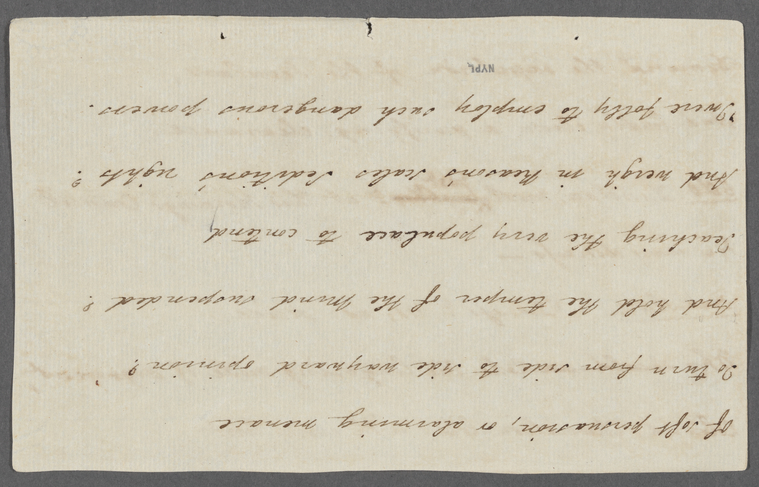 Of soft persuasion, or alarming menace
To turn from side to side wayward opinion?
And hold the temper of the mind suspended?
Teaching the very populace to contend
And weigh in Reason's scales Sedition's rights?
'Twere folly to employ such dangerous powers.
NYPL